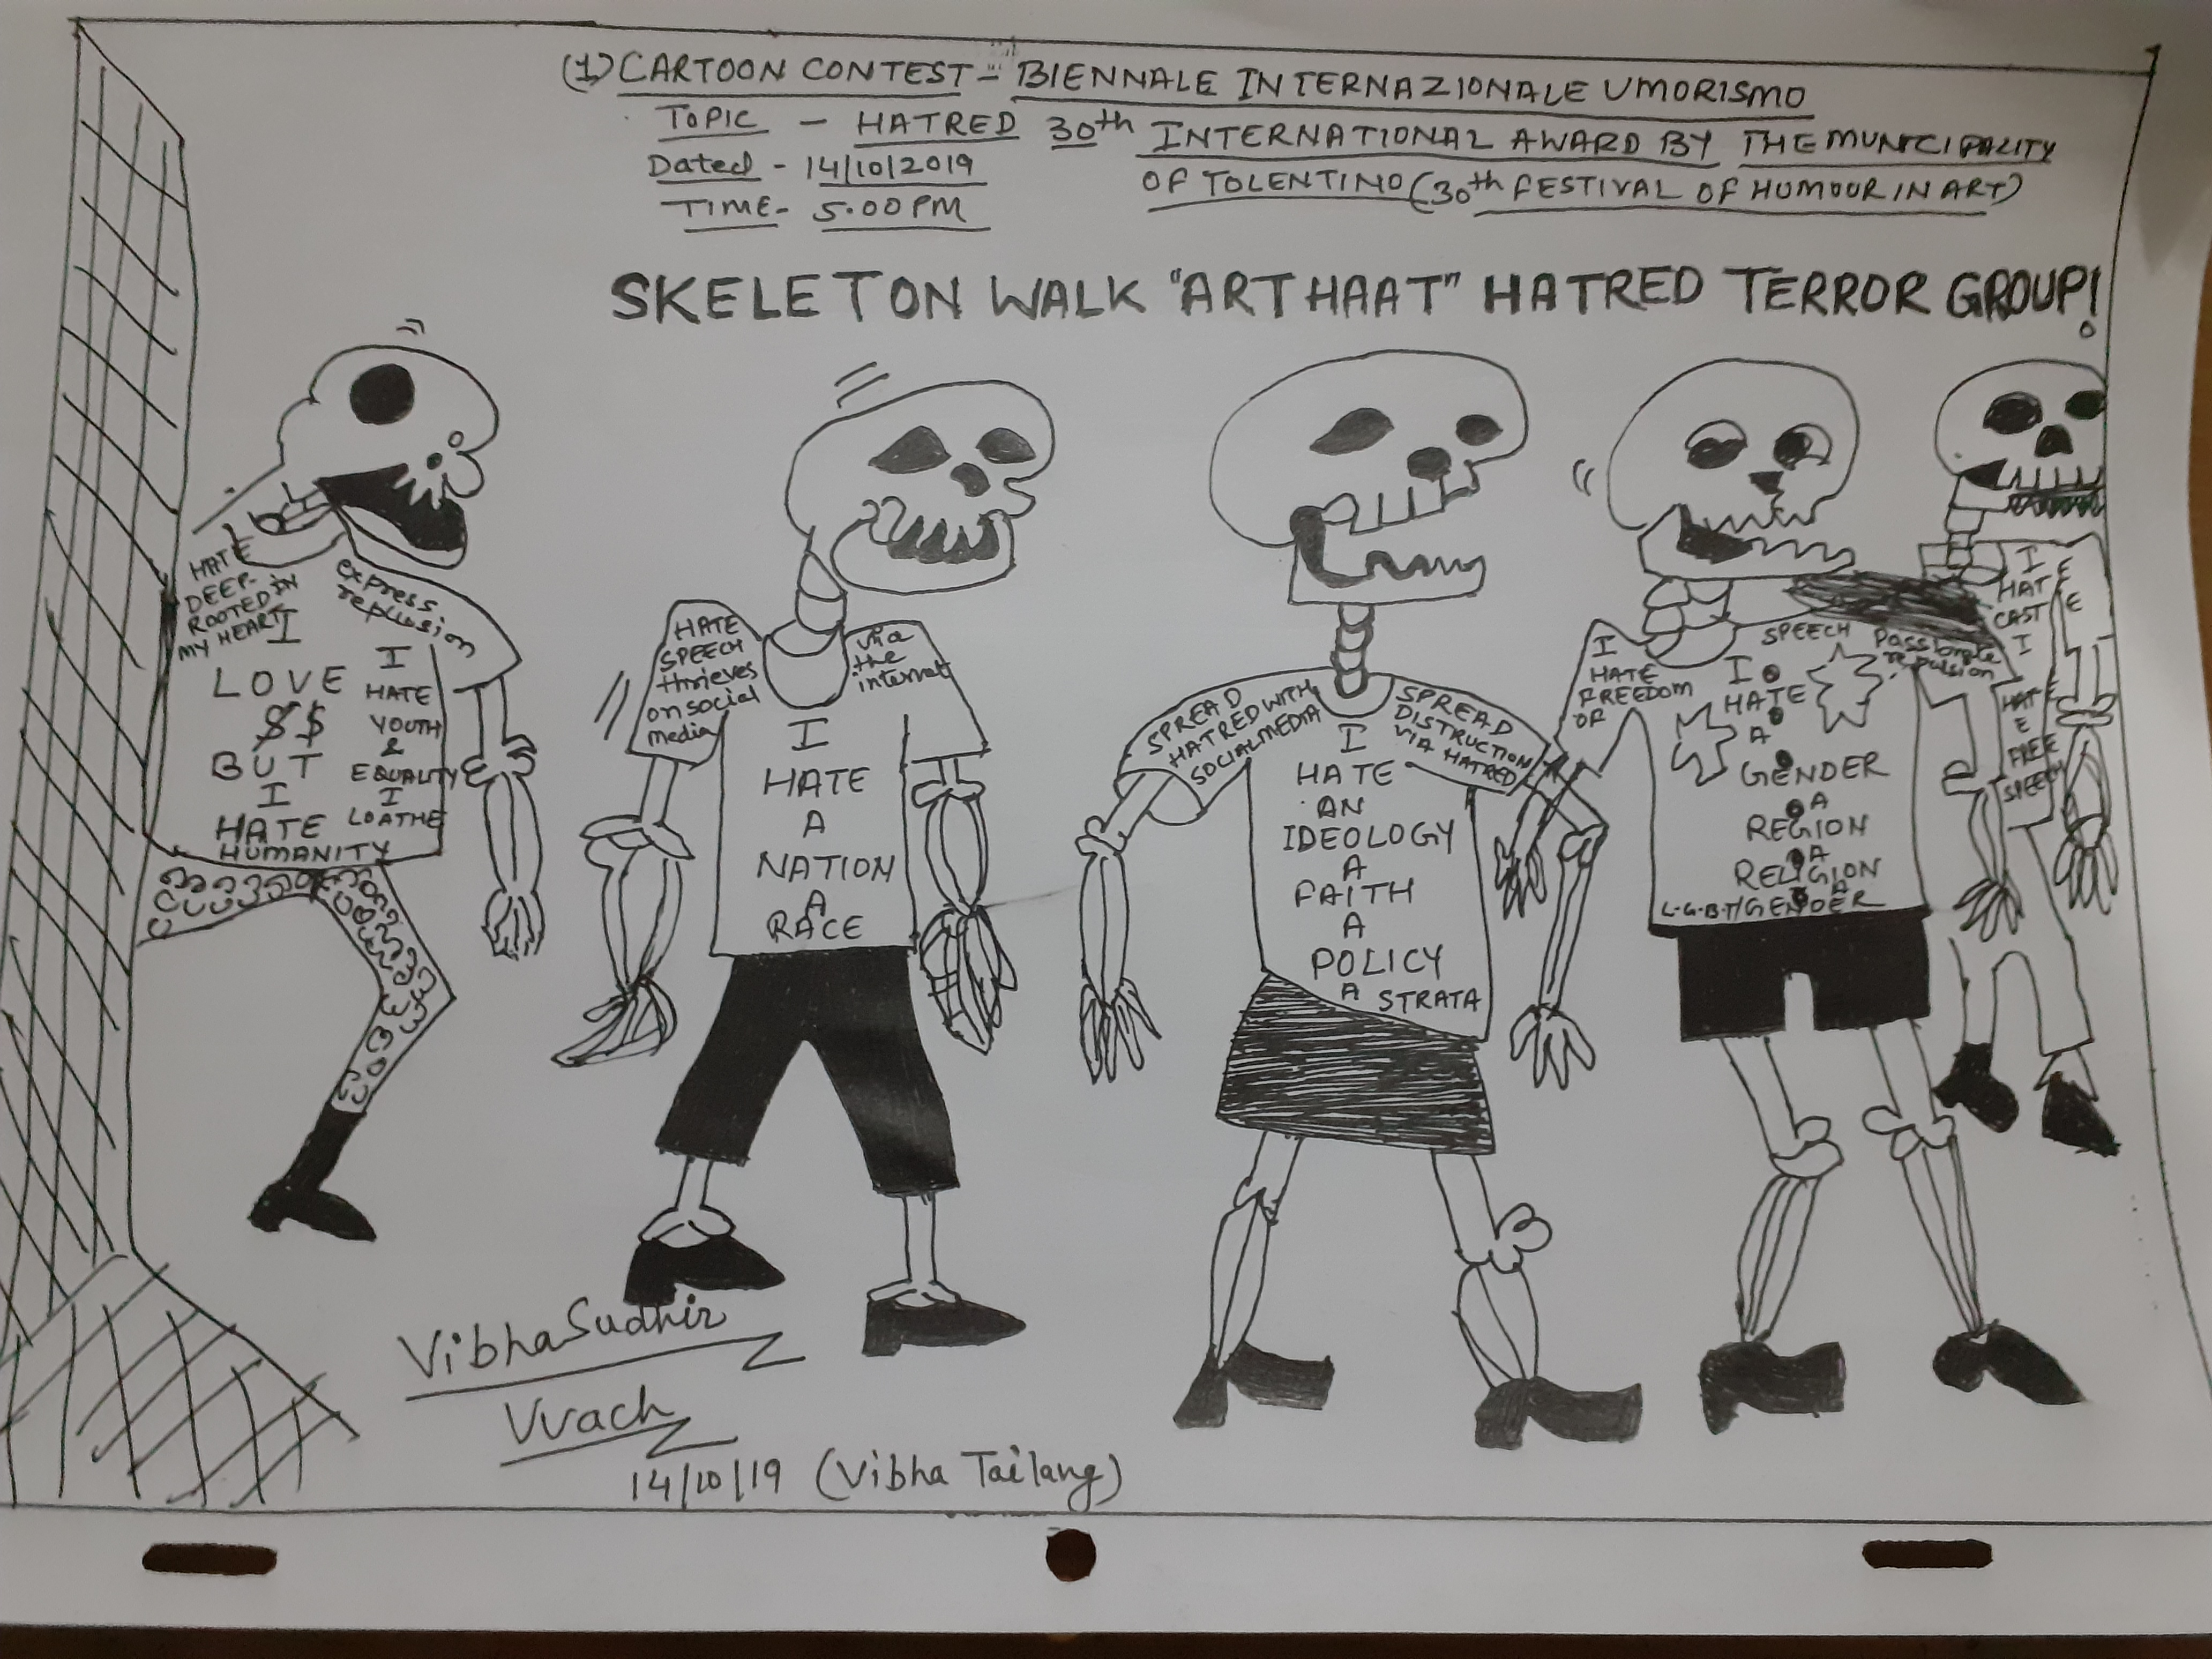 (1) CARTOON CONTEST - BIENNALE INTERNAZIONALE UMORISMO
TOPIC - HATRED 30th INTERNATIONAL AWARD BY THE MUNICIPALITY
OF TOLENTINO (30th FESTIVAL OF HUMOUR IN ART)
Dated - 14/10/2019
TIME - 5.00 PM
SKELETON WALK "ART HAAT" HATRED TERROR GROUP!
HATE
DEEP-
ROOTED IN
MY HEART
express
replusion
I
LOVE
$$
BUT
I
HATE
HUMANITY
I
HATE
YOUTH
&
EQUALITY
I
LOATHE
HATE
SPEECH
thrieves
on social
media
via
the
internet
I
HATE
A
NATION
A
RACE
SPREAD
HATRED WITH
SOCIAL MEDIA
SPREAD
DISTRUCTION
VIA HATRED
I
HATE
AN
IDEOLOGY
A
FAITH
A
POLICY
A STRATA
I
HATE
FREEDOM
OF
SPEECH
Passionate
repulsion
I
HATE
A
GENDER
A
REGION
A
RELIGION
A
L.G.B.T/GENDER
I
HATE
CASTE
I
HATE
FREE
SPEECH
Vibha Sudhir
Vvach
14/10/19 (Vibha Tailang)